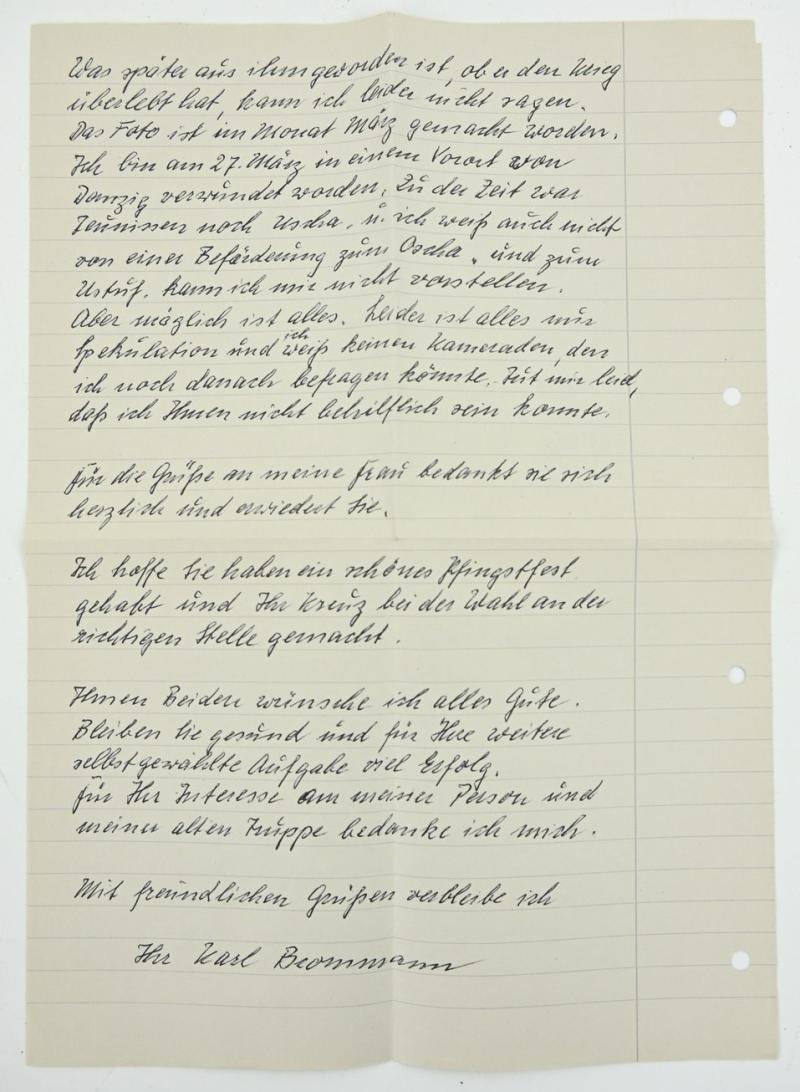 Was später aus ihm geworden ist, ob er den Krieg
überlebt hat, kann ich leider nicht sagen.
Das Foto ist im Monat März gemacht worden.
Ich bin am 27. März in einem Vorort von
Danzig verwundet worden. Zu der Zeit war
Teunissen noch Uscha. u. ich weiß auch nicht
von einer Beförderung zum Oscha. und zum
Ustuf. kann ich mir nicht vorstellen.
Aber möglich ist alles. Leider ist alles nur
Spekulation und ich weiß keinen Kameraden, den
ich noch danach befragen könnte. Tut mir leid,
daß ich Ihnen nicht behilflich sein konnte.
Für die Grüße an meine Frau bedankt sie sich
herzlich und erwiedert Sie.
Ich hoffe Sie haben ein schönes Pfingstfest
gehabt und Ihr Kreuz bei der Wahl an der
richtigen Stelle gemacht.
Ihnen Beiden wünsche ich alles Gute.
Bleiben Sie gesund und für Ihre weitere
selbstgewählte Aufgabe viel Erfolg.
Für Ihr Interesse an meiner Person und
meiner alten Truppe bedanke ich mich.
Mit freundlichen Grüßen verbleibe ich
Ihr Karl Brommann